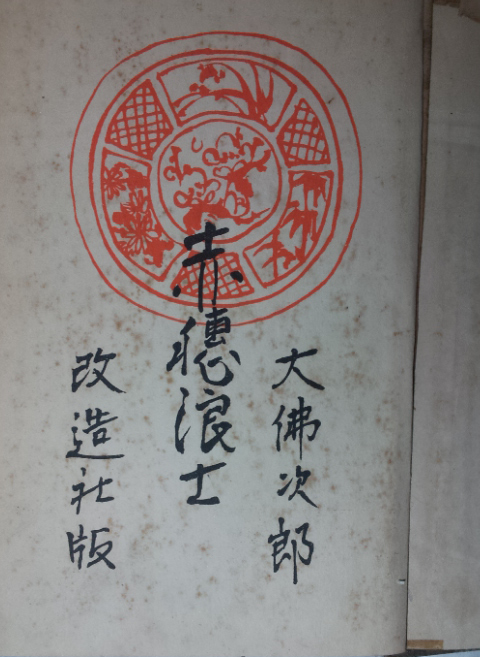 大佛次郎
赤穗浪士
改造社版